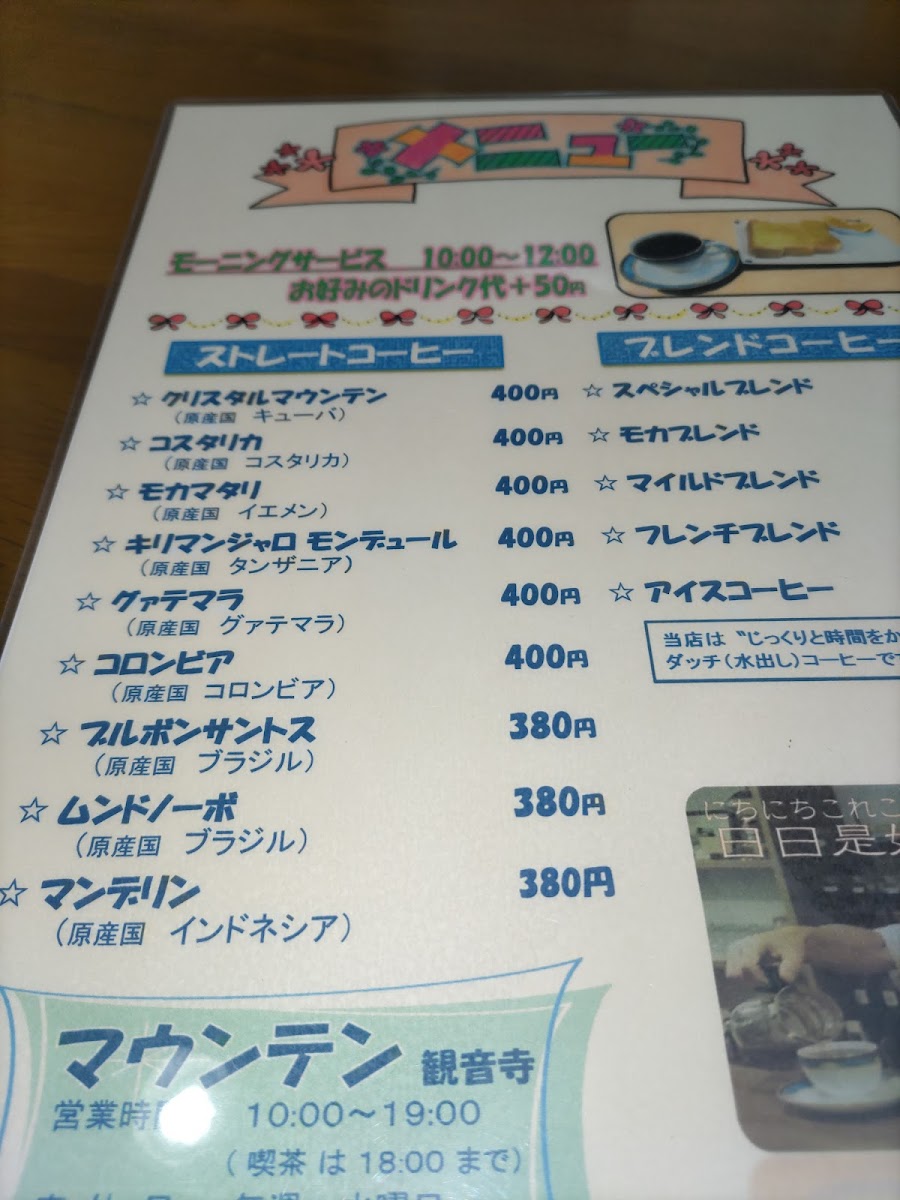 メニュー
モーニングサービス 10:00～12:00
お好みのドリンク代＋50円
ストレートコーヒー
☆ クリスタルマウンテン 400円
（原産国 キューバ）
☆ コスタリカ 400円
（原産国 コスタリカ）
☆ モカマタリ 400円
（原産国 イエメン）
☆ キリマンジャロ モンデュール 400円
（原産国 タンザニア）
☆ グァテマラ 400円
（原産国 グァテマラ）
☆ コロンビア 400円
（原産国 コロンビア）
☆ ブルボンサントス 380円
（原産国 ブラジル）
☆ ムンドノーボ 380円
（原産国 ブラジル）
☆ マンデリン 380円
（原産国 インドネシア）
ブレンドコーヒー
☆ スペシャルブレンド
☆ モカブレンド
☆ マイルドブレンド
☆ フレンチブレンド
☆ アイスコーヒー
当店は〝じっくりと時間をか
ダッチ（水出し）コーヒーです
にちにちこれこ
日日是
マウンテン 観音寺
営業時間 10:00～19:00
（ 喫茶 は 18:00 まで）